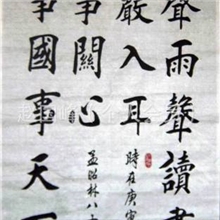 聲雨聲讀書
入耳
事關心
事國事天
時在庚寅
孟昭林八